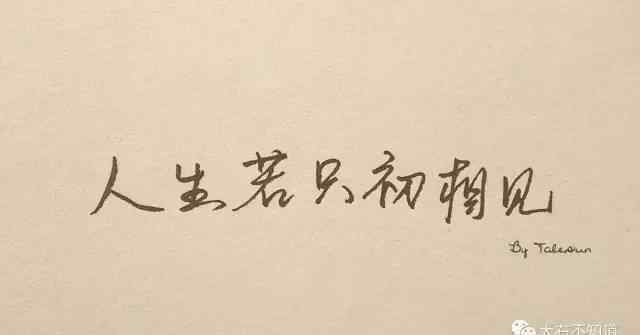 人生若只初相见
By Talesun
大石不知道